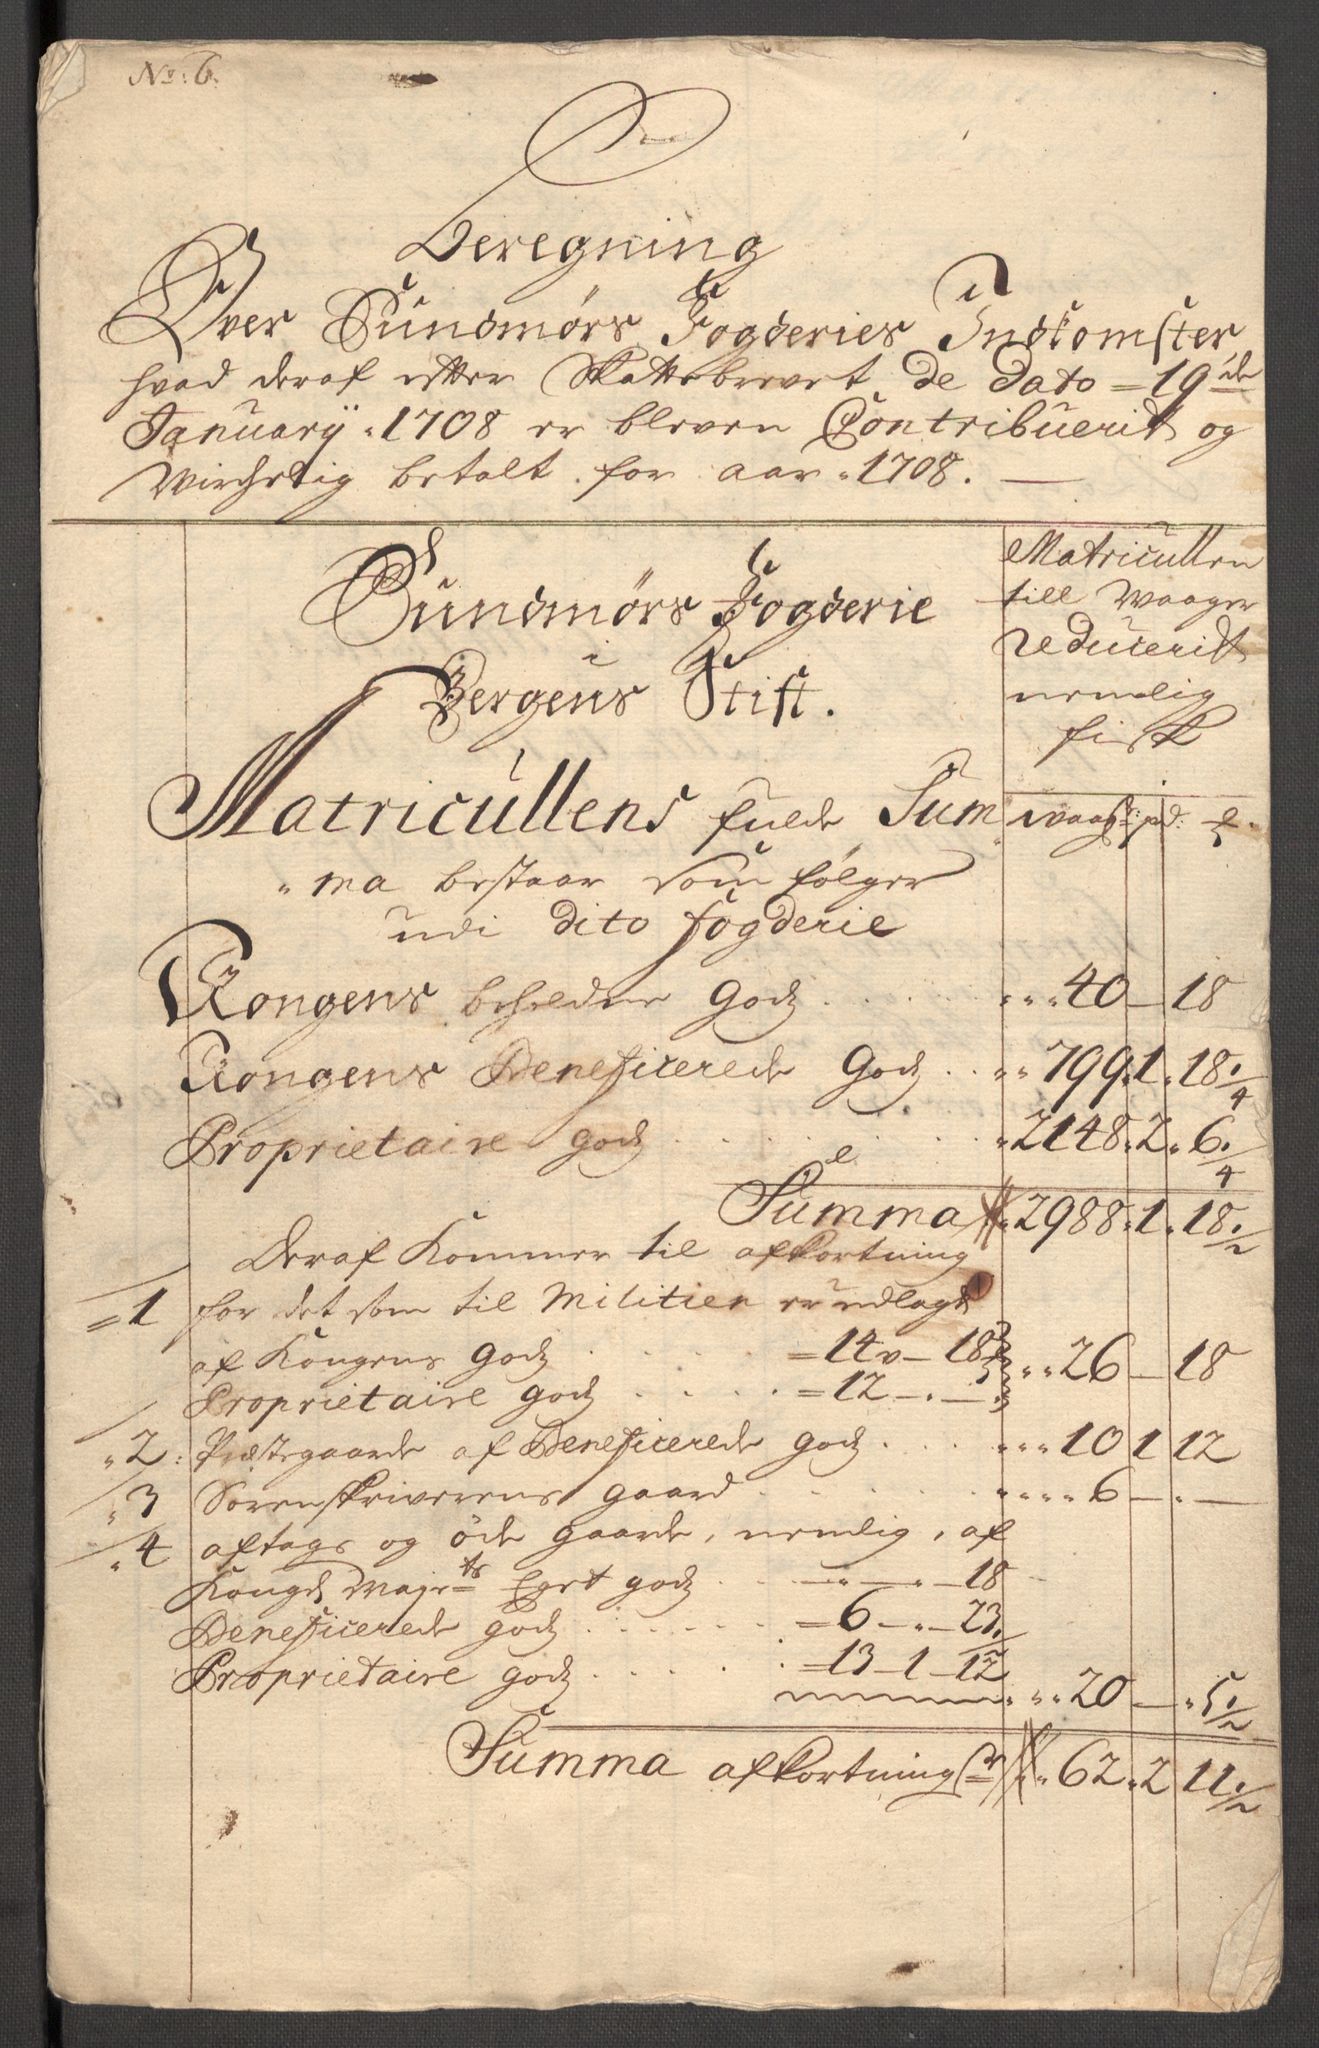 No: 6.
Beregning
Over Sundmørs Fogderies Indkomster
hvad deraf efter Skattebrevet de dato 19de
January 1708 er bleven Contribuerit og
Wirchelig betalt for aar 1708.
Sundmørs Fogderie
i
Bergens Stift.
Matricullen
till Waager
reducerit
nemlig
fisk
Matricullens fulde Sum
waag: pd:
ma bestaar som følger
udi dito fogderie
Kongens beholdne Godz 40 — 18
Kongens Beneficerede Godz 799 1 18 1/4
Proprietaire godz 2148 2 6 1/4
Summa 2988 1 18 1/2
Deraf Kommer til afkortning
1 for det som til Militien er udlagt
af Kongens Godz 14 v — 18
26 — 18
Proprietaire godz 12 — . —
2: Præstegaarde af Beneficerede godz 10 1 12
3 Sorenskriverens gaard 6 — . —
4 aftags og øde gaarde, nemlig, af
Kongl Mayts Eget godz — . — 18
Beneficerede Godz 6 — . — 23 1/2
Proprietaire godz 13 — 1 — 12
20 — 5 1/2
Summa afkortning 62 2 11 1/2